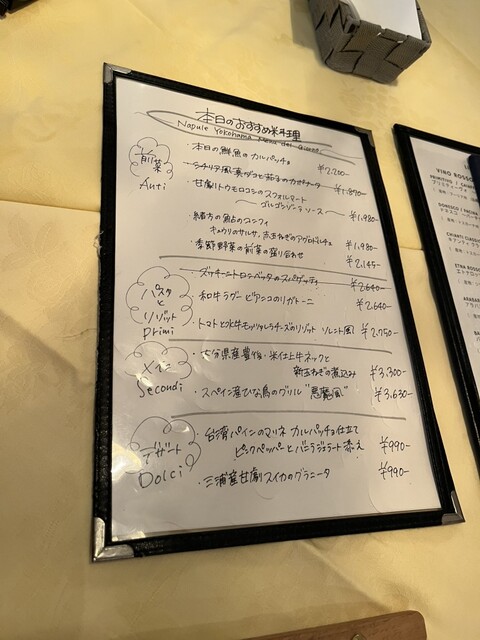 本日のおすすめ料理
Napule Yokohama Menu del Giorno
前菜
Anti
・本日の鮮魚のカルパッチョ ¥2,200-
・シチリア風 真ダコと茄子のカポナータ ¥1,870-
・甘劇トウモロコシのスフォルマート
～ゴルゴンゾーラソース～ ¥1,980-
・緒方の鮎のコンフィ
キュウリのサルサ、古玉ねぎのアグロドルチェ ¥1,980-
・季節野菜の前菜の盛り合わせ ¥2,145-
パスタとリゾット
primi
・ズッキーニトロンベッタのスパゲッティ ¥2,640-
・和牛ラグービアンコのリガトーニ ¥2,640-
・トマトと水牛モッツァレラチーズのリゾット ソレント風 ¥2,750-
メイン
Secondi
・大分県産豊後・米仕上牛ネックと
新玉ねぎの煮込み ¥3,300-
・スペイン産ひな鳥のグリル "悪魔風" ¥3,630-
デザート
Dolci
・台湾パインのマリネ カルパッチョ仕立て
ピンクペッパーとバニラジェラート添え ¥990-
・三浦産甘劇スイカのグラニータ ¥990-
VINO ROSSO
PRIMITIVO
CHIANTI CLASSIC
ETNA ROSS